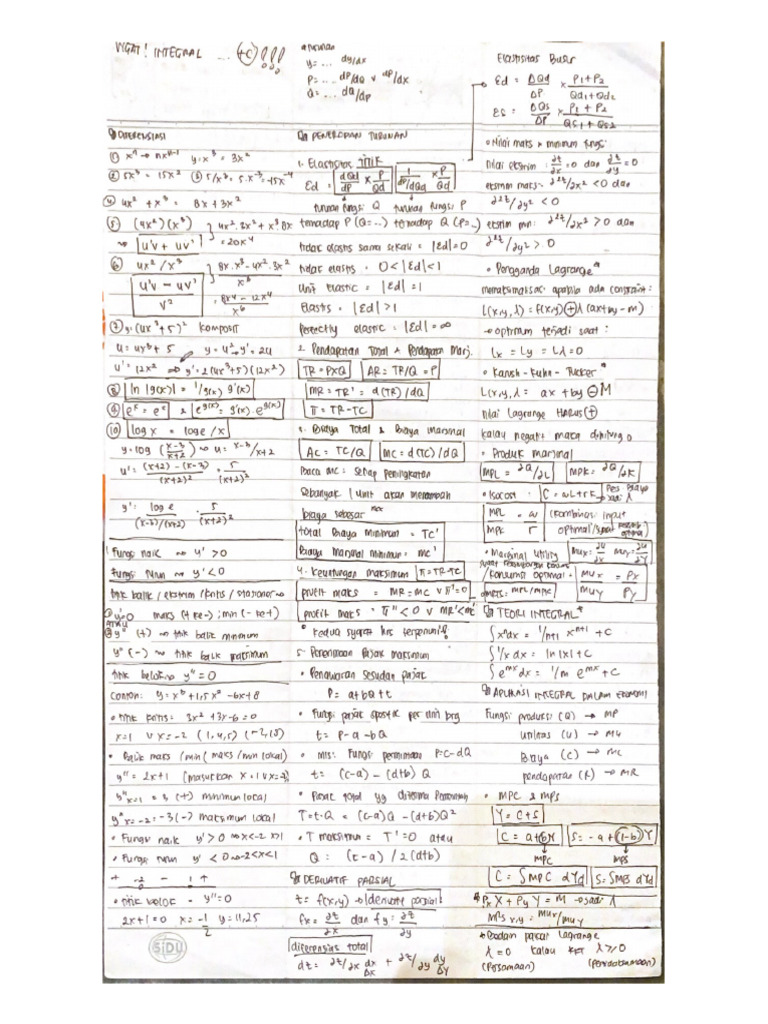 INGAT! INTEGRAL ... +C !!!
DIFERENSIASI
① xⁿ → nxⁿ⁻¹ y=x³ = 3x²
② 5x³ = 15x² ③ 5/x³ = 5.x⁻³ = -15x⁻⁴
④ 4x² + x³ = 8x + 3x²
⑤ (4x²)(x³) 4x².3x² + x³.8x
→ u'v + uv' = 20x⁴
⑥ 4x²/x³ 8x.x³ - 4x².3x² / x⁶
u'v - uv' / v² = 8x⁴ - 12x⁴ / x⁶
⑦ y=(4x³+5)² komposit
u = 4x³ + 5 y = u² → y' = 2u
u' = 12x² → y' = 2(4x³+5)(12x²)
⑧ ln |g(x)| = 1/g(x) g'(x)
⑨ eˣ = eˣ & e^g(x) = g'(x).e^g(x)
⑩ log x = log e / x
y = log (x-3 / x+2) → u = x-3/x+2
u' = (x+2) - (x-3) / (x+2)² = 5 / (x+2)²
y' = log e / (x-3)/(x+2) . 5 / (x+2)²
Fungsi naik → y' > 0
Fungsi turun → y' < 0
titik balik / ekstrim / kritis / stasioner →
① y'=0 maks (+ ke -); min (- ke +)
ATAU
② y'' (+) → titik balik minimum
y'' (-) → titik balik maksimum
titik belok → y'' = 0
contoh: y = x³ + 1,5x² - 6x + 8
• titik kritis = 3x² + 3x - 6 = 0
x=1 v x=-2 (1, 4,5) (-2, 18)
• Balik maks / min (maks / min lokal)
y'' = 2x+1 (masukkan x=1 v x=-2)
y'' x=1 = 3 (+) minimum lokal
y'' x=-2 = -3 (-) maksimum lokal
• Fungsi naik y' > 0 → x<-2 x>1
• Fungsi turun y' < 0 → -2<x<1
+ -2 - 1 +
• titik belok → y'' = 0
2x+1=0 x = -1/2 y = 11,25
SiDU
# turunan
y = ... dy/dx
P = ... dP/dQ v dP/dx
Q = ... dQ/dP
PENERAPAN TURUNAN
1. Elastisitas Titik
Ed = dQd/dP x P/Qd 1/dP/dQd x P/Qd
turunan fungsi Q turunan fungsi P
terhadap P (Q=...) terhadap Q (P=...)
tidak elastis sama sekali = |Ed|=0
tidak elastis = 0<|Ed|<1
Unit elastic = |Ed| = 1
Elastis = |Ed| > 1
Perfectly elastic = |Ed| = ∞
2. Pendapatan Total & Pendapatan Marj.
TR = PxQ AR = TR/Q = P
MR = TR' = d(TR)/dQ
π = TR - TC
3. Biaya Total & Biaya Marjinal
AC = TC/Q MC = d(TC)/dQ
Baca MC : setiap peningkatan
sebanyak 1 unit akan menambah
biaya sebesar
total Biaya minimum = TC'
Biaya Marjinal minimum = MC'
4. Keuntungan maksimum π = TR-TC
profit maks = MR = MC v π' = 0
profit maks = π'' < 0 v MR' < MC'
• Kedua syarat hrs terpenuhi!
5. Penerimaan Pajak maksimum
• Penawaran sesudah pajak
P = a + bQ + t
• Fungsi pajak spesifik per unit brg
t = P - a - bQ
• Mis: Fungsi permintaan P = c - dQ
t = (c-a) - (d+b) Q
• Pajak total yg diterima Pemerintah
T = t.Q = (c-a)Q - (d+b)Q²
• T maksimum = T' = 0 atau
Q = (c-a) / 2(d+b)
DERIVATIF PARSIAL
z = f(x,y) → derivatif parsial
fx = ∂z/∂x dan fy = ∂z/∂y
diferensial total
dz = ∂z/∂x dx/Δx + ∂z/∂y dy/ΔY
Elastisitas Busur
Ed = ΔQd/ΔP x P1+P2 / Qd1+Qd2
ES = ΔQs/ΔP x P1+P2 / Qs1+Qs2
• Nilai maks & minimum fungsi:
nilai ekstrim : ∂z/∂x = 0 dan ∂z/∂y = 0
ekstrim maks : ∂²z/∂x² < 0 dan
∂²z/∂y² < 0
ekstrim min : ∂²z/∂x² > 0 dan
∂²z/∂y² > 0
• Pengganda Lagrange
memaksimalkan apabila ada constraint:
L(x,y,λ) = f(x,y) + λ (ax+by-m)
→ optimum terjadi saat :
Lx = Ly = Lλ = 0
• Karush-Kuhn-Tucker
L(x,y,λ = ax + by - M
nilai Lagrange HARUS +
kalau negatif maka dihitung 0
• Produk marjinal
MPL = ∂Q/∂L MPK = ∂Q/∂K
• Isocost : C = wL + rK
MPL/MPK = w/r (kombinasi input
optimal/
• Marginal utility MUx = ∂U/∂x MUy = ∂U/∂y
/konsumsi optimal = MUx/MUY = Px/PY
TEORI INTEGRAL
∫xⁿdx = 1/n+1 xⁿ⁺¹ + C
∫1/x dx = ln |x| + C
∫eᵐˣdx = 1/m eᵐˣ + C
APLIKASI INTEGRAL DALAM EKONOMI
Fungsi produksi (Q) → MP
utilitas (U) → MU
Biaya (C) → MC
pendapatan (R) → MR
• MPC & MPS
Y = C+S
C = a+bY S = -a + (1-b)Y
MPC MPS
C = ∫MPC dYd S = ∫MPS dYd
Px X + Py Y = M → jadi λ
MRS x,y = MUx/MUY
• Bedain pakai Lagrange
λ = 0 kalau KKT λ ≥ 0
(Persamaan) (Pertidaksamaan)